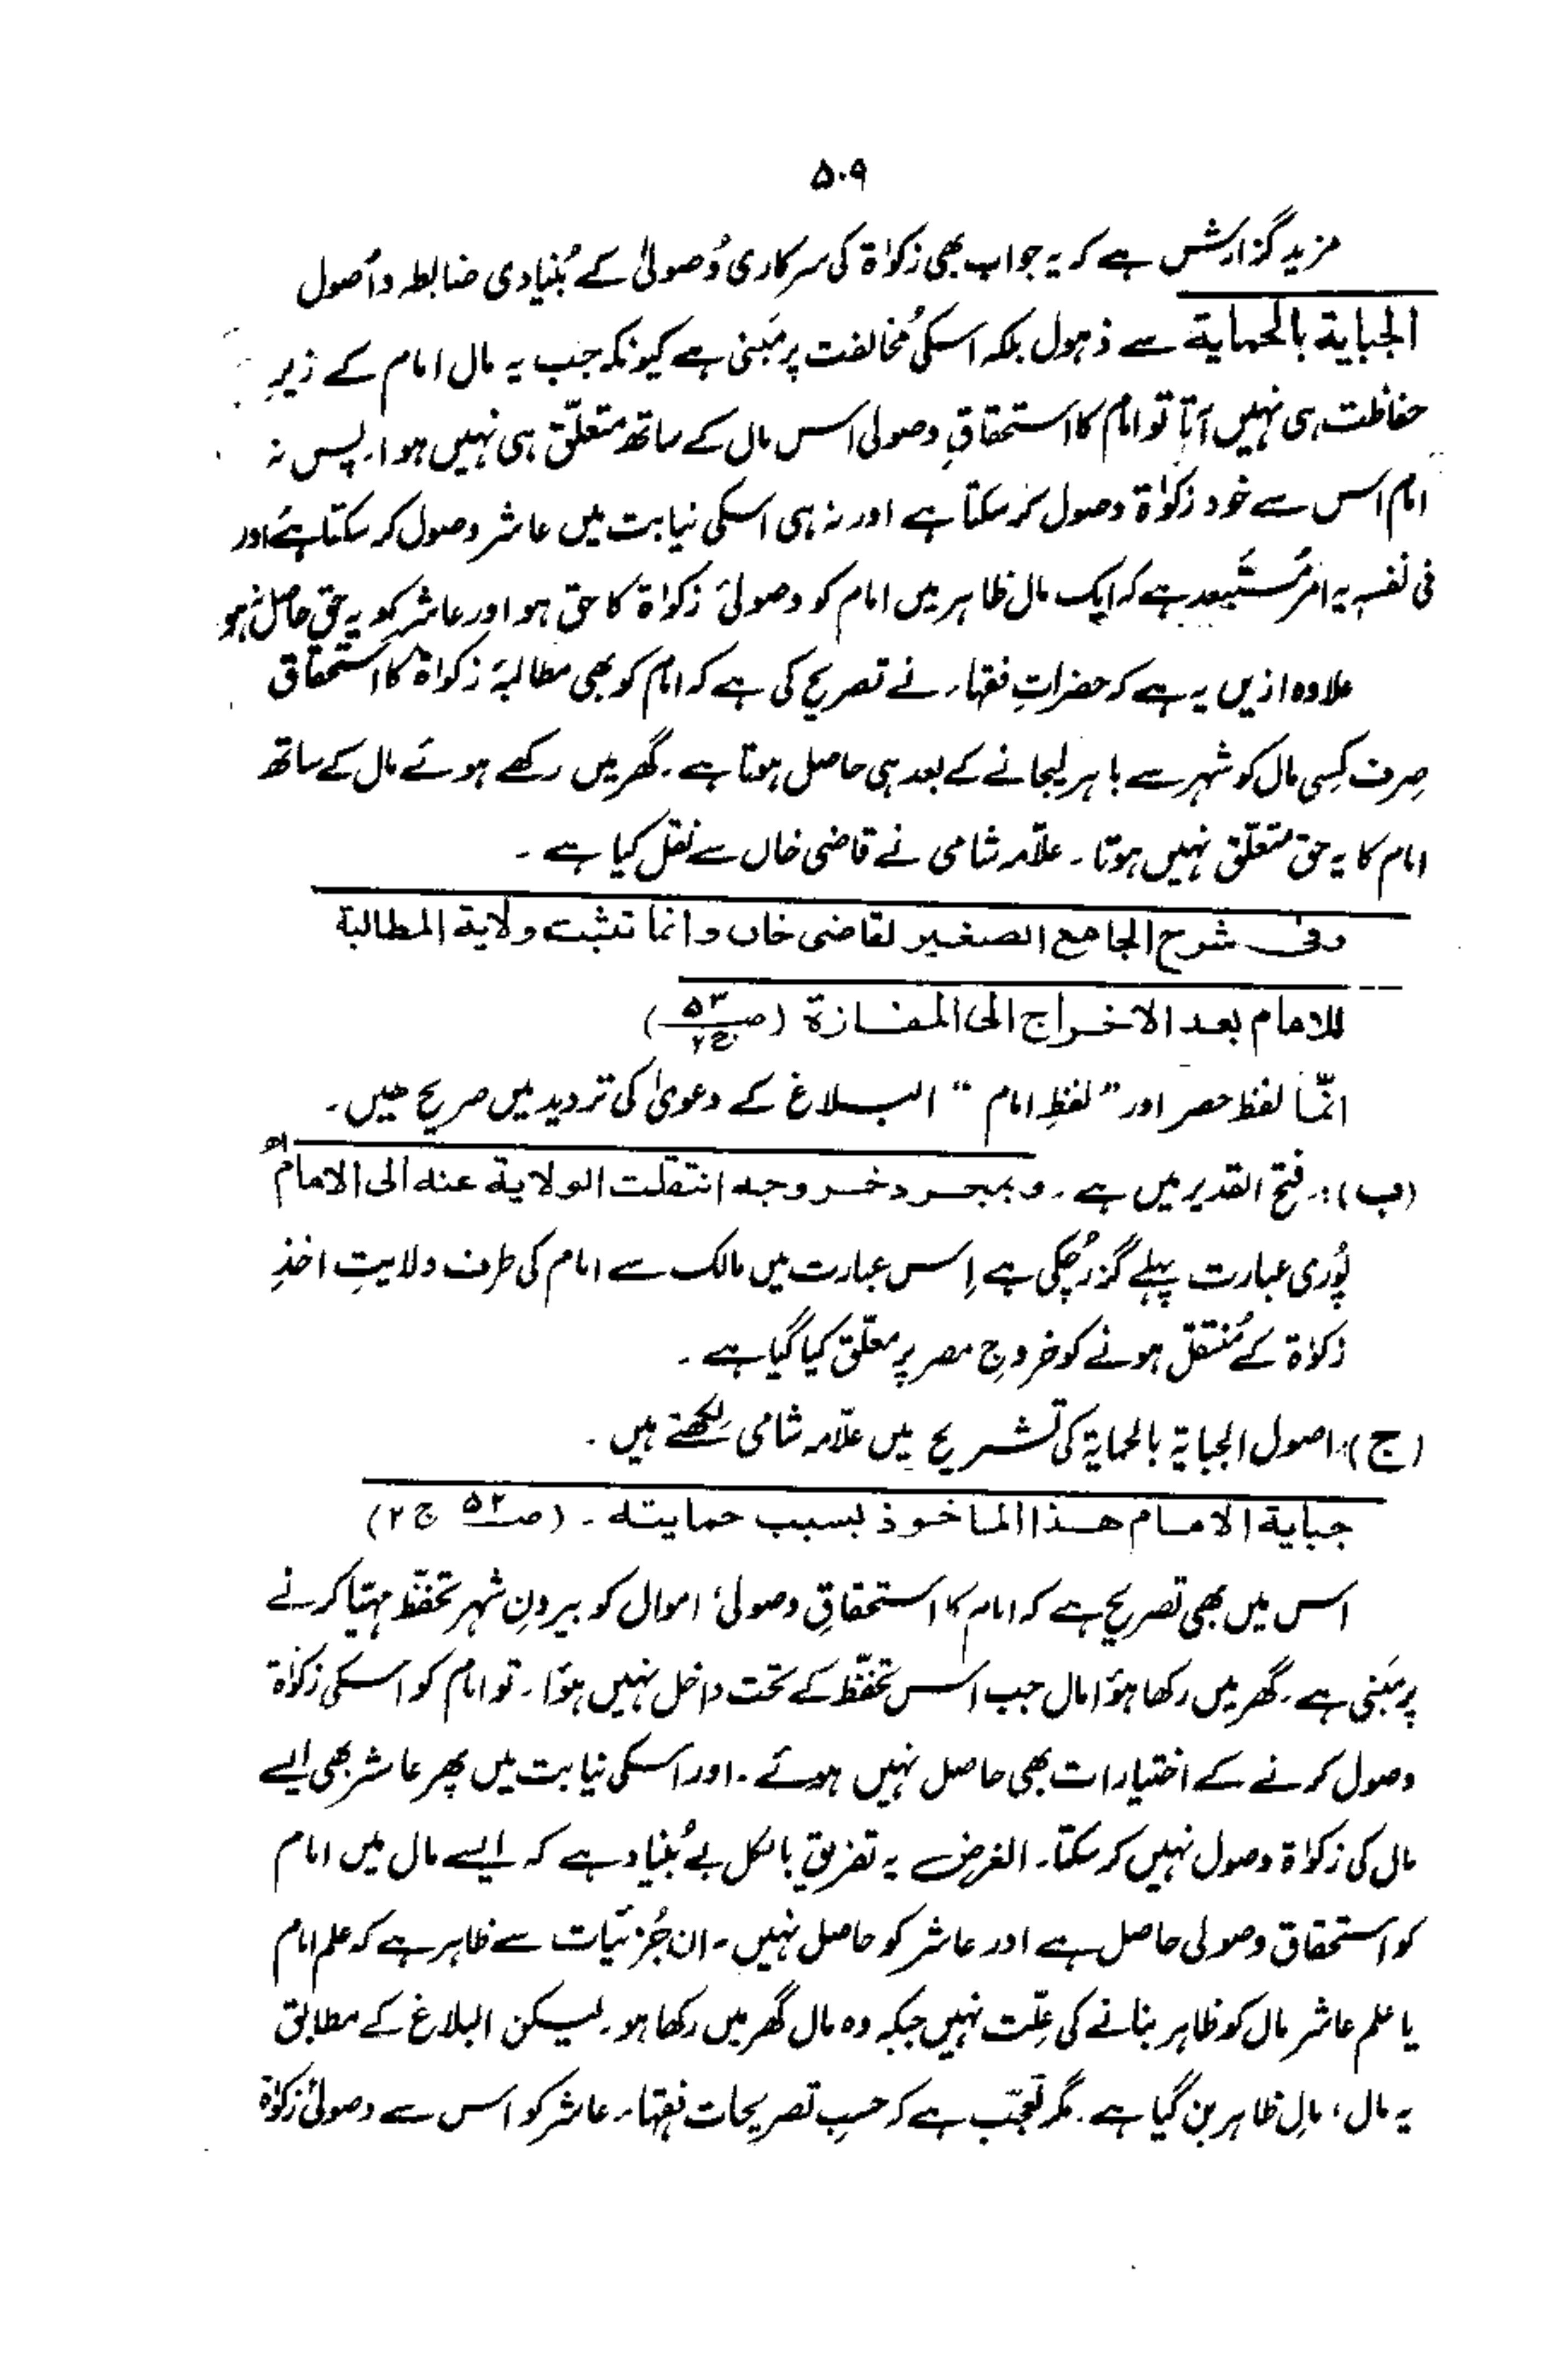 ۵۰۹
مزید گزارش ہے کہ یہ جواب بھی زکوٰۃ کی سرکاری وُصولیٰ کے بُنیادی ضابطہ و اُصول
الجباية بالحماية سے ذہول بلکہ اسکی مُخالفت پر مَبنی ہے کیونکہ جب یہ مال امام کے زیرِ
حفاظت ہی نہیں آتا تو امام کا استحقاقِ وصولی اس مال کے ساتھ متعلّق ہی نہیں ہوا۔ پس نہ
امام اس سے خود زکوٰۃ وصول کر سکتا ہے اور نہ ہی اسکی نیابت میں عاشر وصول کر سکتا ہے اور
فی نفسہٖ یہ امر مُستَبعد ہے کہ ایک مال ظاہر میں امام کو وصولیٔ زکوٰۃ کا حق ہو اور عاشر کو یہ حق حاصل نہ ہو
علاوہ ازیں یہ ہے کہ حضراتِ فقہاء نے تصریح کی ہے کہ امام کو بھی مطالبۂ زکوٰۃ کا استحقاق
صِرف کِسی مال کو شہر سے باہر لیجانے کے بعد ہی حاصل ہوتا ہے۔ گھر میں رکھے ہوئے مال کے ساتھ
امام کا یہ حق متعلّق نہیں ہوتا۔ علّامہ شامی نے قاضی خاں سے نقل کیا ہے۔
وفی شرح الجامع الصغیر لقاضی خاں وانما تثبت ولاية المطالبة
للامام بعد الاخراج الی المفازة (صـ۵۳ ج۲)
انّما لفظ حصر اور ”لفظِ امام“ البلاغ کے دعویٰ کی تردید میں صریح ہیں۔
(ب):۔ فتح القدیر میں ہے۔ وبمجرد خروجه انتقلت الولاية عنه الی الامام اھ
پُوری عبارت پہلے گزر چُکی ہے اِس عبارت میں مالک سے امام کی طرف ولایتِ اخذِ
زکوٰۃ کے مُنتقل ہونے کو خروجِ مصر پر معلّق کیا گیا ہے۔
(ج):۔ اصول الجبایۃ بالحمایۃ کی تشریح میں علّامہ شامی لکھتے ہیں۔
جباية الامام هذا الماخوذ بسبب حمايته۔ (صـ۵۲ ج۲)
اس میں بھی تصریح ہے کہ امام کا استحقاقِ وصولیٔ اموال کو بیرونِ شہر تحفّظ مہیّا کرنے
پر مَبنی ہے۔ گھر میں رکھا ہؤا مال جب اس تحفّظ کے تحت داخل نہیں ہؤا۔ تو امام کو اسکی زکوٰۃ
وصول کرنے کے اختیارات بھی حاصل نہیں ہوئے۔ اور اسکی نیابت میں پھر عاشر بھی ایسے
مال کی زکوٰۃ وصول نہیں کر سکتا۔ الغرض یہ تفریق بالکل بے بُنیاد ہے کہ ایسے مال میں امام
کو استحقاق وصولی حاصل ہے اور عاشر کو حاصل نہیں۔ ان جُزئیّات سے ظاہر ہے کہ علم امام
یا علم عاشر مال کو ظاہر بنانے کی عِلّت نہیں جبکہ وہ مال گھر میں رکھا ہو۔ لیکن البلاغ کے مطابق
یہ مال، مالِ ظاہر بن گیا ہے۔ مگر تعجّب ہے کہ حسبِ تصریحات فقہاء عاشر کو اس سے وصولیٔ زکوٰۃ